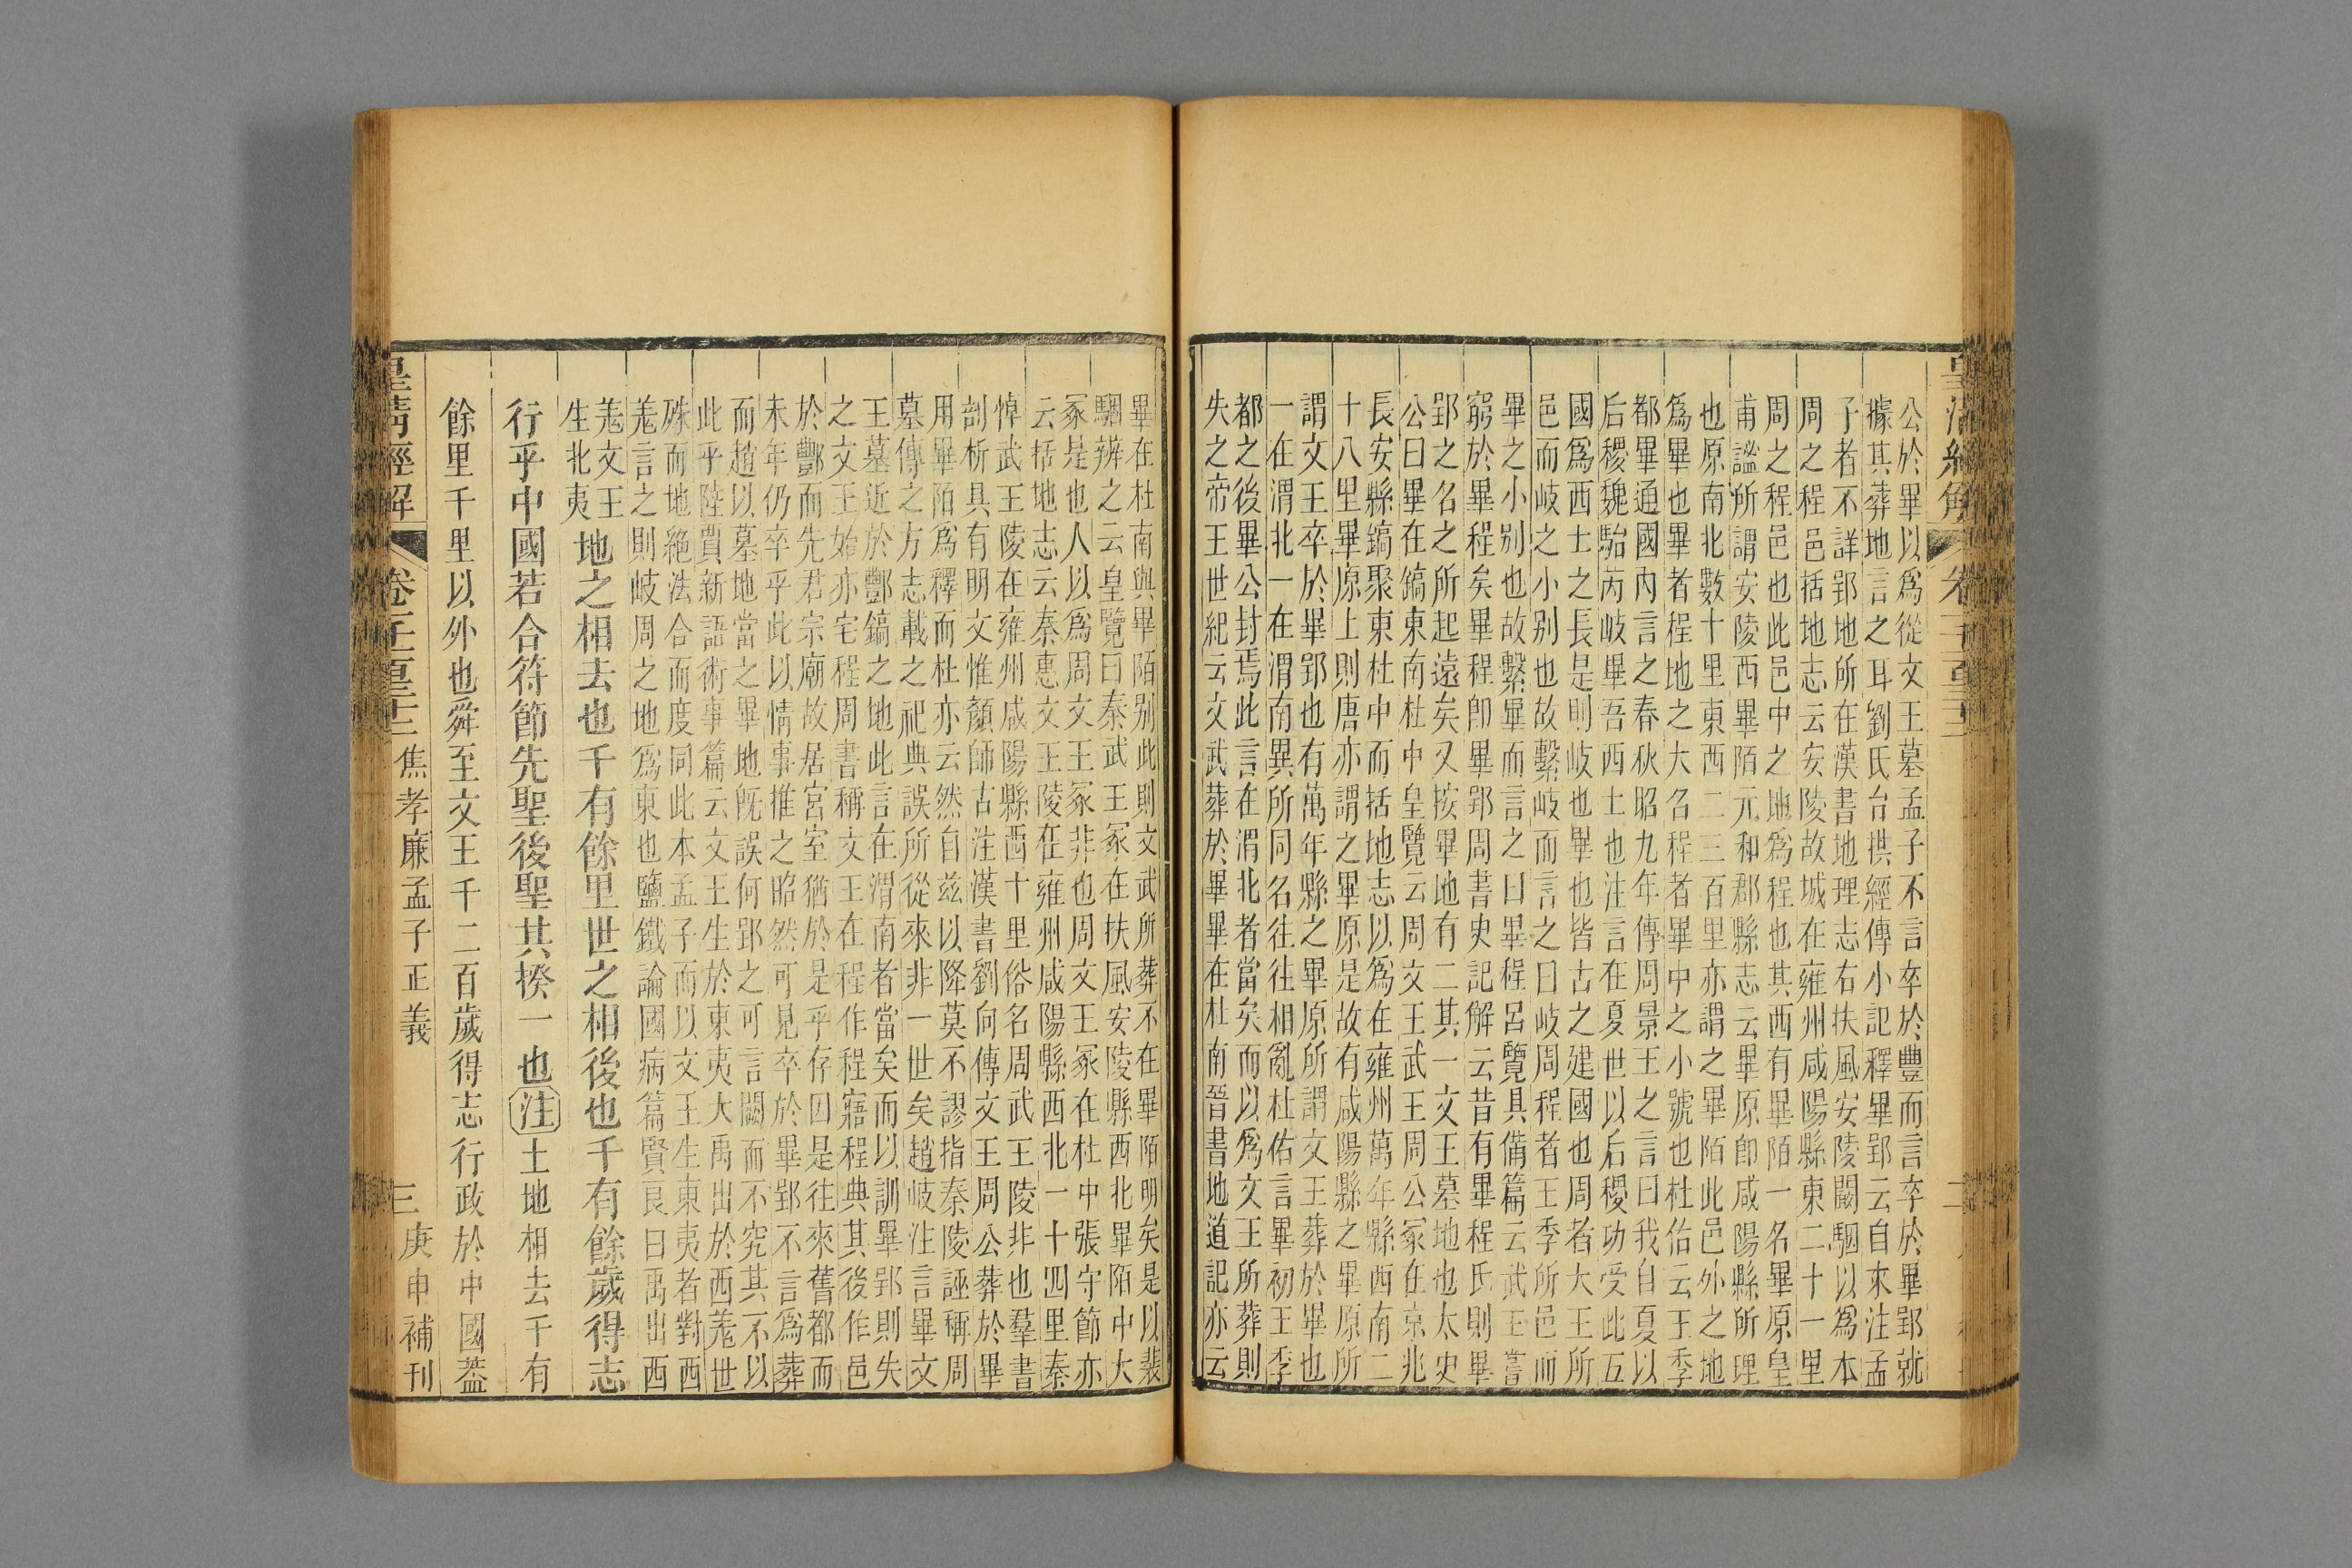 公於畢以爲從文王墓孟子不言卒於豐而言卒於畢郢就
據其葬地言之耳劉氏台拱經傳小記釋畢郢云自來注孟
子者不詳郢地所在漢書地理志右扶風安陵闞駰以爲本
周之程邑括地志云安陵故城在雍州咸陽縣東二十一里
周之程邑也此邑中之地爲程也其西有畢陌一名畢原皇
甫謐所謂安陵西畢陌元和郡縣志云畢原卽咸陽縣所理
也原南北數十里東西二三百里亦謂之畢陌此邑外之地
爲畢也畢者程地之大名程者畢中之小號也杜佑云王季
都畢通國內言之春秋昭九年傳周景王之言曰我自夏以
后稷魏駘芮岐畢吾西土也注言在夏世以后稷功受此五
國爲西土之長是則岐也畢也皆古之建國也周者大王所
邑而岐之小別也故繫岐而言之曰岐周程者王季所邑而
畢之小別也故繫畢而言之曰畢程呂覽具備篇云武王嘗
窮於畢程矣畢程卽畢郢周書史記解云昔有畢程氏則畢
郢之名之所起遠矣又按畢地有二其一文王墓地也太史
公曰畢在鎬東南杜中皇覽云周文王武王周公冢在京兆
長安縣鎬聚東杜中而括地志以爲在雍州萬年縣西南二
十八里畢原上則唐亦謂之畢原是故有咸陽縣之畢原所
謂文王卒於畢郢也有萬年縣之畢原所謂文王葬於畢也
一在渭北一在渭南異所同名往往相亂杜佑言畢初王季
都之後畢公封焉此言在渭北者當矣而以爲文王所葬則
失之帝王世紀云文武葬於畢畢在杜南晉書地道記亦云
畢在杜南與畢陌別此則文武所葬不在畢陌明矣是以裴
駰辨之云皇覽曰秦武王冢在扶風安陵縣西北畢陌中大
冢是也人以爲周文王冢非也周文王冢在杜中張守節亦
云括地志云秦惠文王陵在雍州咸陽縣西北一十四里秦
悼武王陵在雍州咸陽縣西十里俗名周武王陵非也羣書
剖析具有明文惟顏師古注漢書劉向傳文王周公葬於畢
用畢陌爲釋而杜亦云然自茲以降莫不謬指秦陵誣稱周
墓傳之方志載之祀典誤所從來非一世矣趙岐注言畢文
王墓近於酆鎬之地此言在渭南者當矣而以訓畢郢則失
之文王始亦宅程周書稱文王在程作程寤程典其後作邑
於酆而先君宗廟故居宮室猶於是乎存囚是往來舊都而
未年仍卒乎此以情事推之昭然可見卒於畢郢不言爲葬
而趙以墓地當之畢地旣誤何郢之可言闕而不究其不以
此乎陸賈新語術事篇云文王生於東夷大禹出於西羗世
殊而地絶法合而度同此本孟子而以文王生東夷者對西
羗言之則岐周之地爲東也鹽鐵論國病篇賢良曰禹出西
羗文王
生北夷
地之相去也千有餘里世之相後也千有餘歲得志
行乎中國若合符節先聖後聖其揆一也注土地相去千有
餘里千里以外也舜至文王千二百歲得志行政於中國蓋
皇清經解 焦孝廉孟子正義 三 庚申補刊